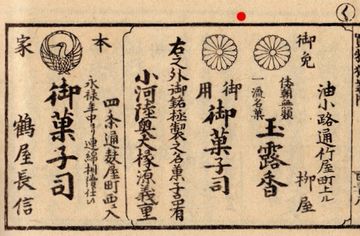 く
油小路通竹屋町上ル
柳屋
御免
倭朝無類
一流名菓
玉露香
御用
御菓子司
右之外御銘極製之名菓子品有
小河陸奥大掾源義里
四条通麸屋町西入
本家
永禄年中ゟ連綿相續仕り
御菓子司
鶴屋長信